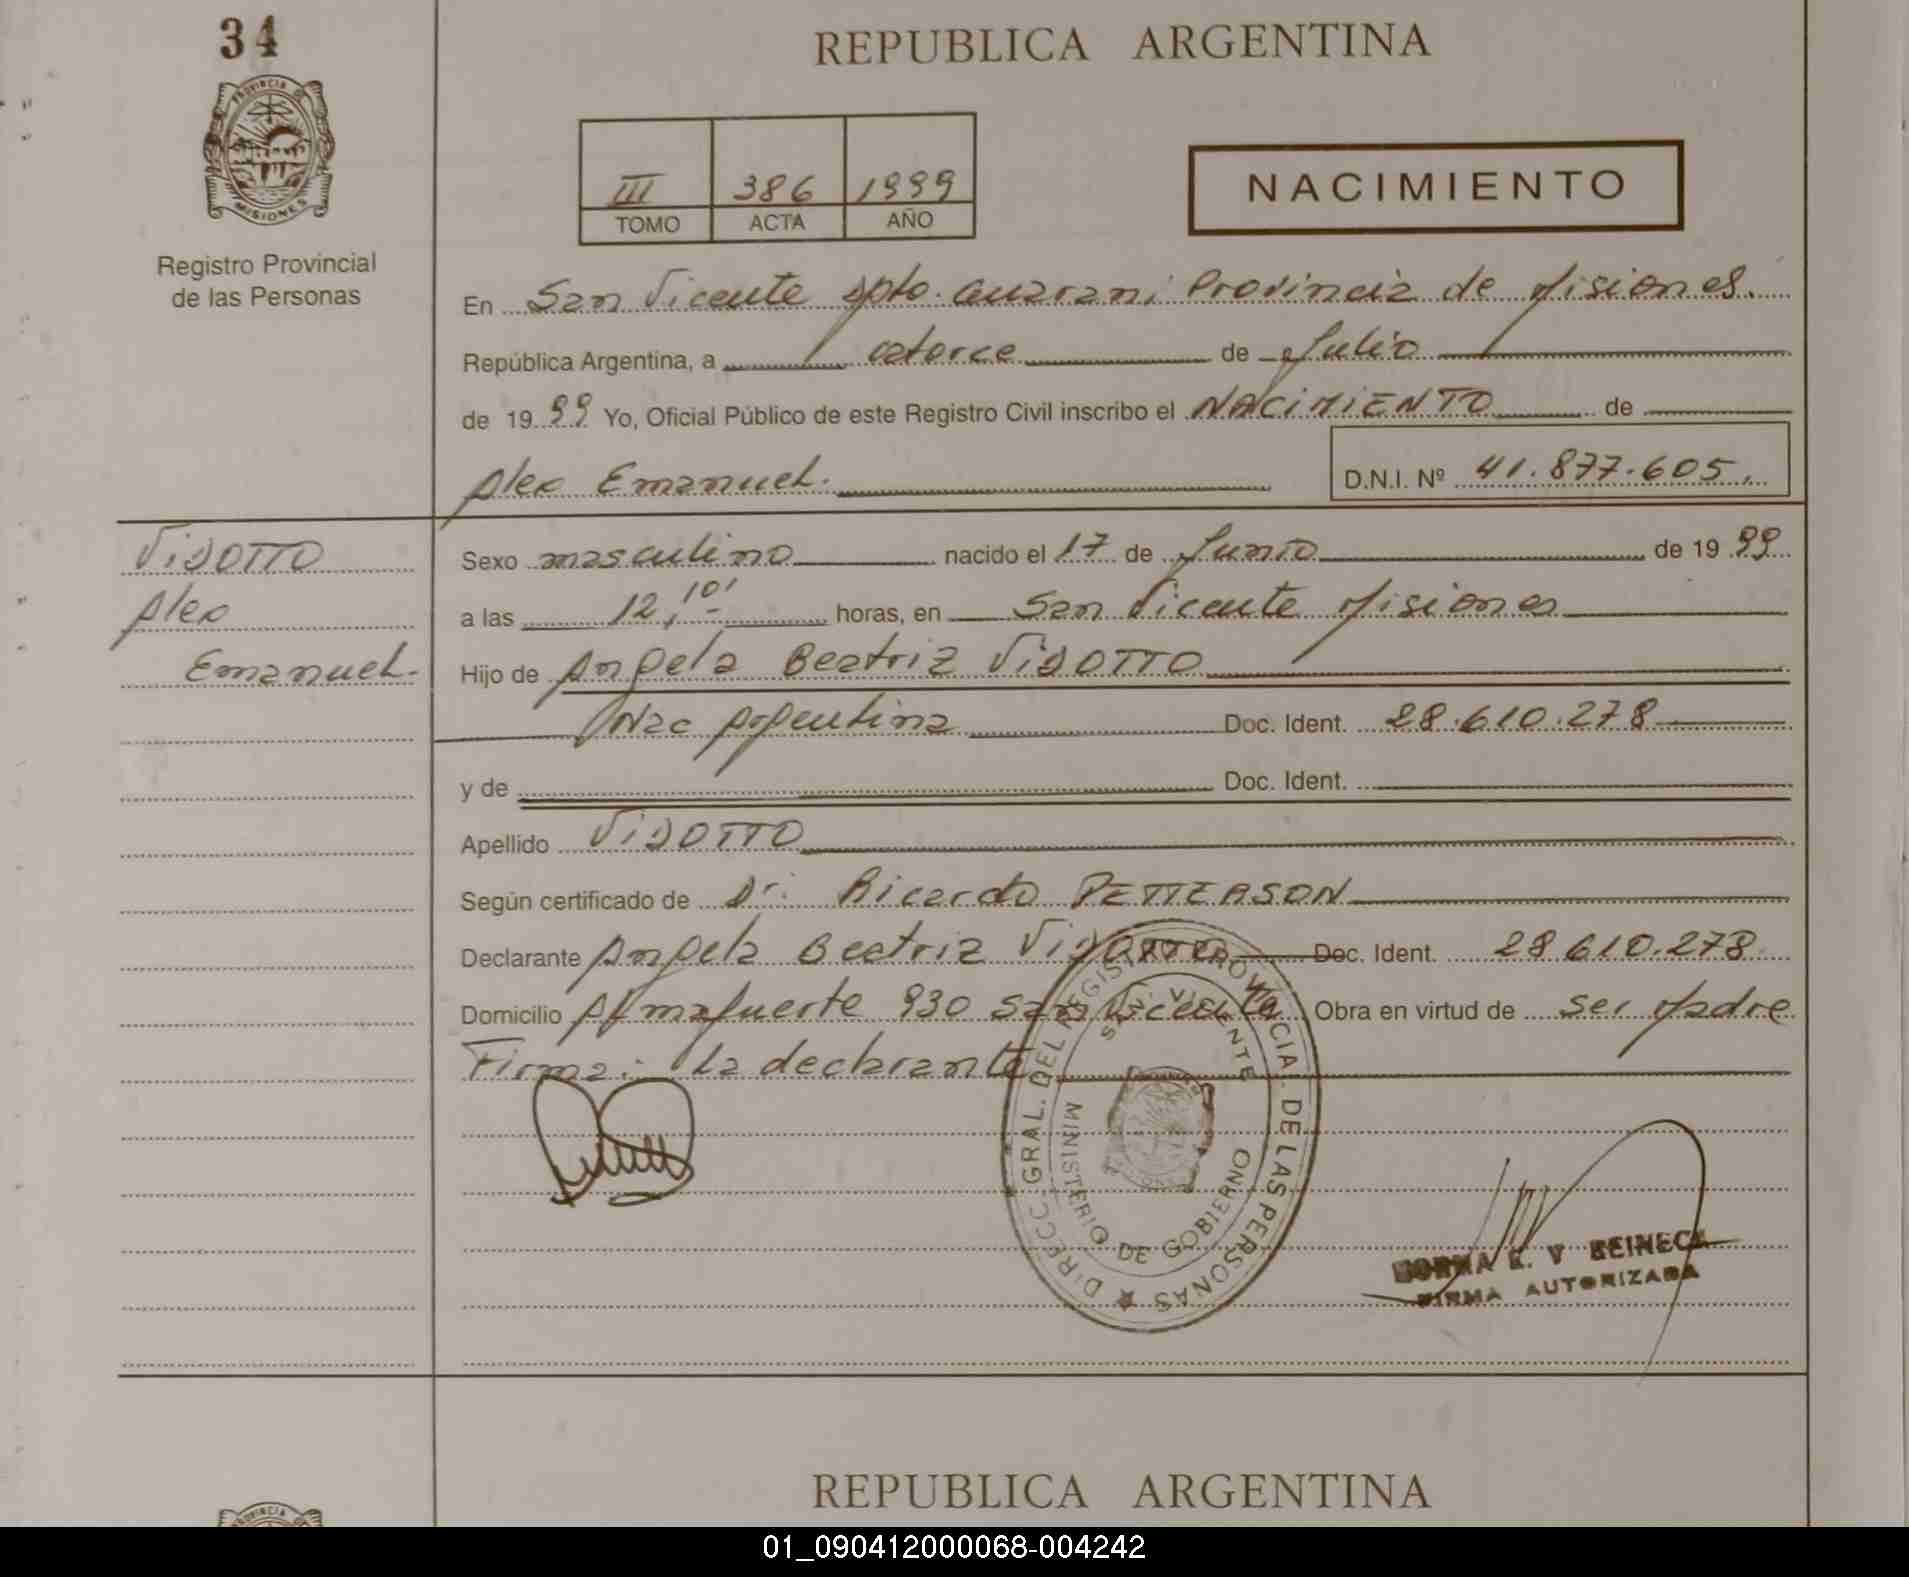 34
PROVINCIA DE
MISIONES
Registro Provincial
de las Personas
REPUBLICA ARGENTINA
III 386 1999
TOMO ACTA AÑO
NACIMIENTO
En San Vicente Dpto. Guarani Provincia de Misiones.
República Argentina, a catorce de Julio
de 1999 Yo, Oficial Público de este Registro Civil inscribo el NACIMIENTO de
Alex Emanuel. D.N.I. Nº 41.877.605.
VIDOTTO
Alex
Emanuel.
Sexo masculino nacido el 17 de Junio de 1999
a las 12,10' horas, en San Vicente Misiones
Hijo de Angela Beatriz VIDOTTO
Nac Argentina Doc. Ident. 28.610.278
y de Doc. Ident.
Apellido VIDOTTO
Según certificado de Dr. Ricardo PETTERSON
Declarante Angela Beatriz VIDOTTO Doc. Ident. 28.610.278
Domicilio Almafuerte 930 San Vicente Obra en virtud de ser Madre
Firma: La declarante
DIRECC. GRAL. DEL REGISTRO PROVINCIAL DE LAS PERSONAS
SAN VICENTE
MINISTERIO DE GOBIERNO
NORMA E. V. REINECK
FIRMA AUTORIZADA
REPUBLICA ARGENTINA
PROVINCIA DE
01_090412000068-004242